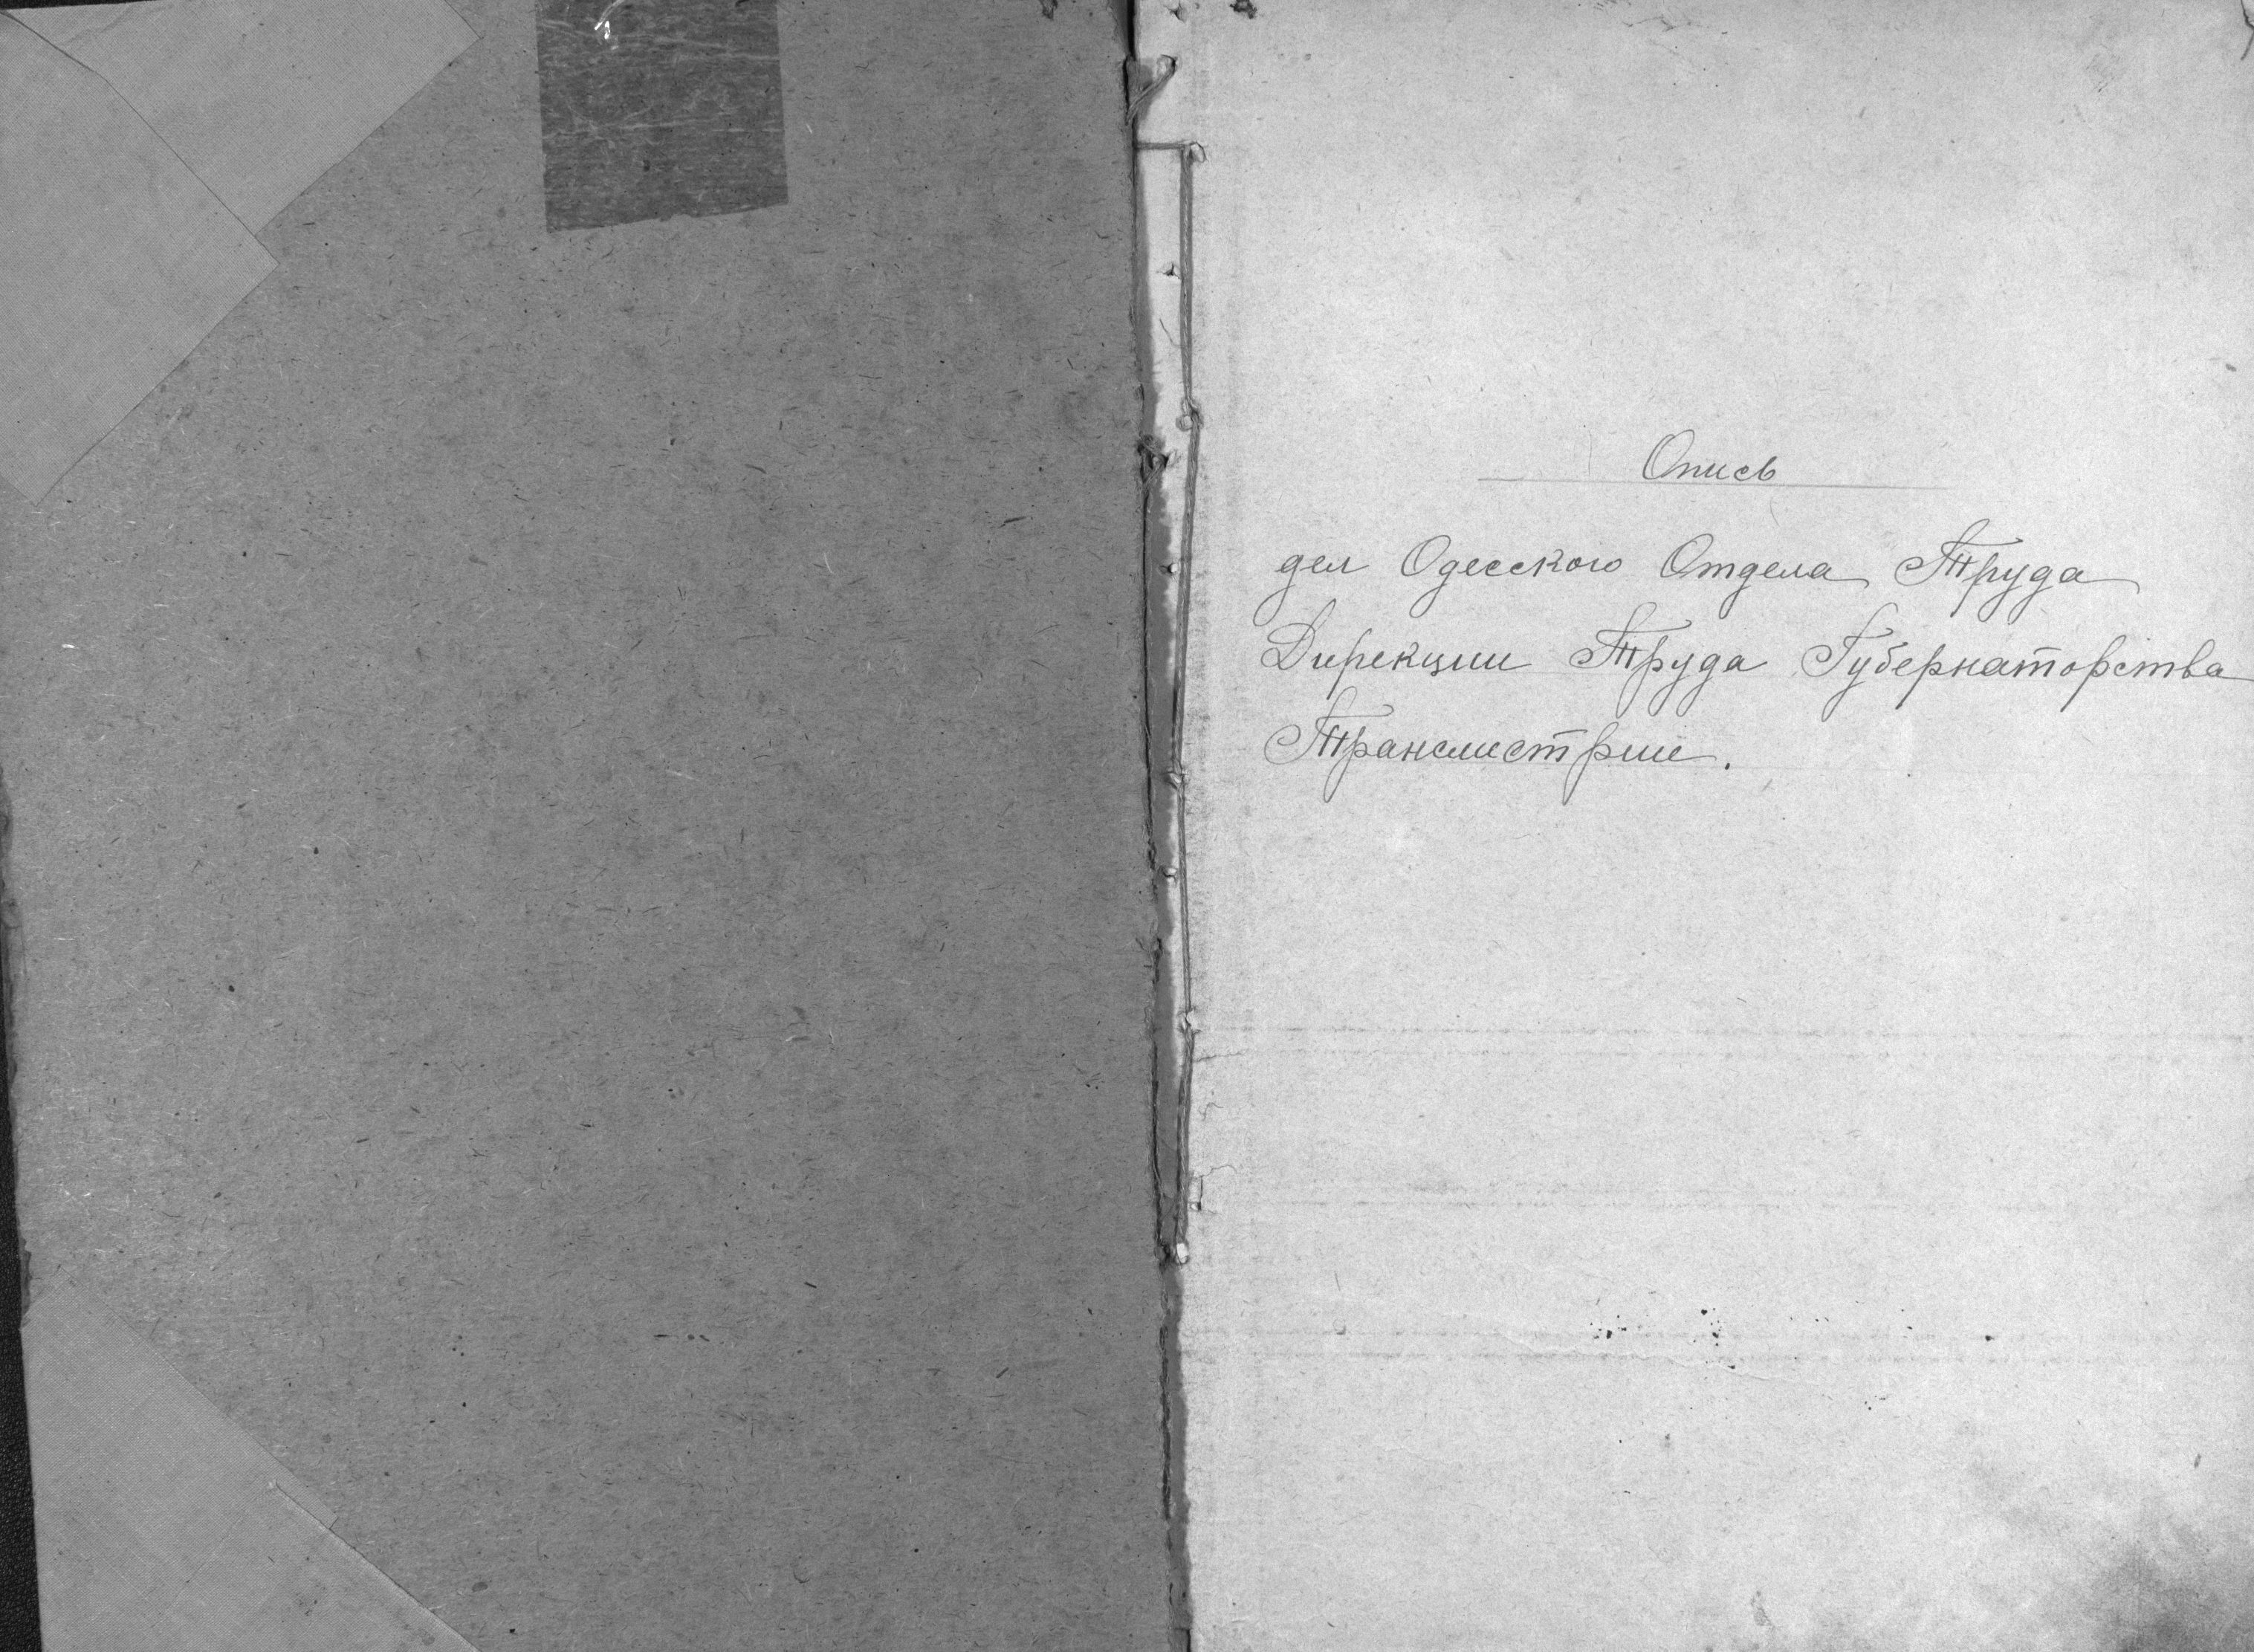 Опись
дел Одесского Отдела Труда
Дирекции Труда Губернаторства
Транснистрии.